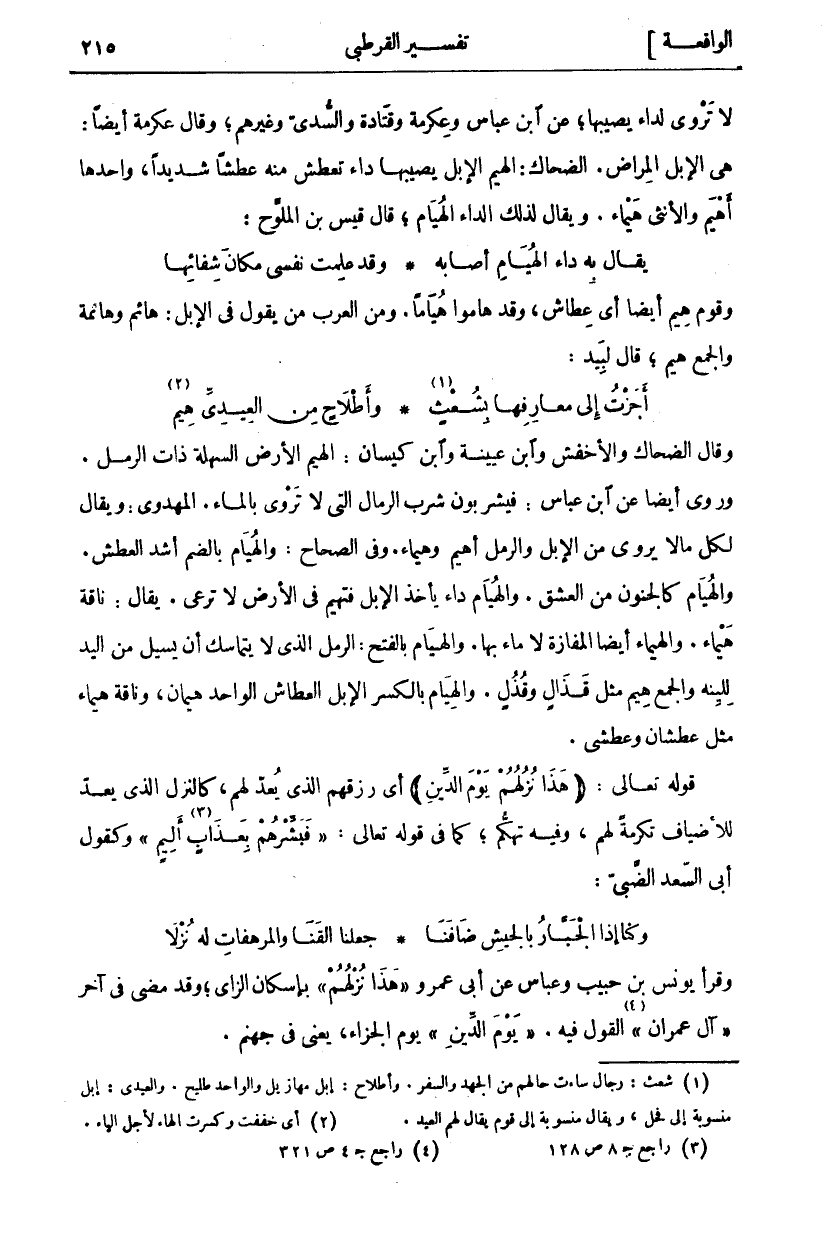 الواقعـــة ] تفســـير القرطبى ٢١٥
لا تَرْوى لداء يصيبها؛ عن آبن عباس وعِكرمة وقَتَادة والسُّدى وغيرهم؛ وقال عكرمة أيضاً:
هى الإبل المِراض. الضحاك: الهيم الإبل يصيبهـا داء تعطش منه عطشًا شـديداً، واحدها
أَهْيَم والأنثى هَيْماء . ويقال لذلك الداء الهُيَام ؛ قال قيس بن الملوَّح :
يقــال بِه داء الهُيَــامِ أصـابه * وقد علِمت نفسى مكانَ شِفائِهـا
وقوم هِيم أيضا أى عِطاش، وقد هاموا هُيَاماً. ومن العرب من يقول فى الإبل: هائم وهائمة
والجمع هيم ؛ قال لَبِيد :
أَجَزْتُ إلى معـارِفِهـا بِشُـعْثٍ (١) * وأَطْلَاحٍ مِن العِيـدىِّ هِيمِ (٢)
وقال الضحاك والأخفش وآبن عيينة وآبن كيسان : الهيم الأرض السهلة ذات الرمـل .
وروى أيضا عن آبن عباس : فيشربون شرب الرمال التى لا تَرْوى بالمـاء. المهدوى: ويقال
لكل مالا يروى من الإبل والرمل أهيم وهيماء. وفى الصحاح : والهُيَام بالضم أشد العطش.
والهُيَام كالجنون من العشق . والهُيَام داء يأخذ الإبل فتهيم فى الأرض لا ترعى . يقال : ناقة
هَيْماء . والهيماء أيضا المفازة لا ماء بها. والهيَام بالفتح: الرمل الذى لا يتماسك أن يسيل من اليد
لِلِينِه والجمع هِيم مثل قَـذَالٍ وقُذُلٍ . والهِيَام بالكسر الإبل العطاش الواحد هيمان، وناقة هيماء
مثل عطشان وعطشى .
قوله تعـالى : ﴿ هَذَا نُزُلُهُمْ يَوْمَ الدِّينِ ﴾ أى رزقهم الذى يُعدّ لهم، كالنزل الذى يعـدّ
للأضياف تكرمةً لهم ، وفيـه تهكُّم ؛ كما فى قوله تعالى : « فَبَشِّرْهُمْ بِعَـذَابٍ أَلِيمٍ (٣) » وكقول
أبى السّعد الضَّبىّ :
وكنا إذا الجَبَّـارُ بالجيشِ ضَافَنَـا * جعلنا القَنَـا والمرهفاتِ له نُزْلَا
وقرأ يونس بن حبيب وعباس عن أبى عمرو «هَذَا نُزْلُهُمْ» بإسكان الزاى؛ وقد مضى فى آخر
« آل عمران (٤) » القول فيه . « يَوْمَ الدِّينِ » يوم الجزاء، يعنى فى جهنم .
(١) شعث : رجال ساءت حالهم من الجهد والسفر . وأطلاح : إبل مهازيل والواحد طليح . والعيدى : إبل
منسوبة إلى فحل ، ويقال منسوبة إلى قوم يقال لهم العيد . (٢) أى خففت وكسرت الهاء لأجل الياء .
(٣) راجع جـ ٨ ص ١٢٨ (٤) راجع جـ ٤ ص ٣٢١